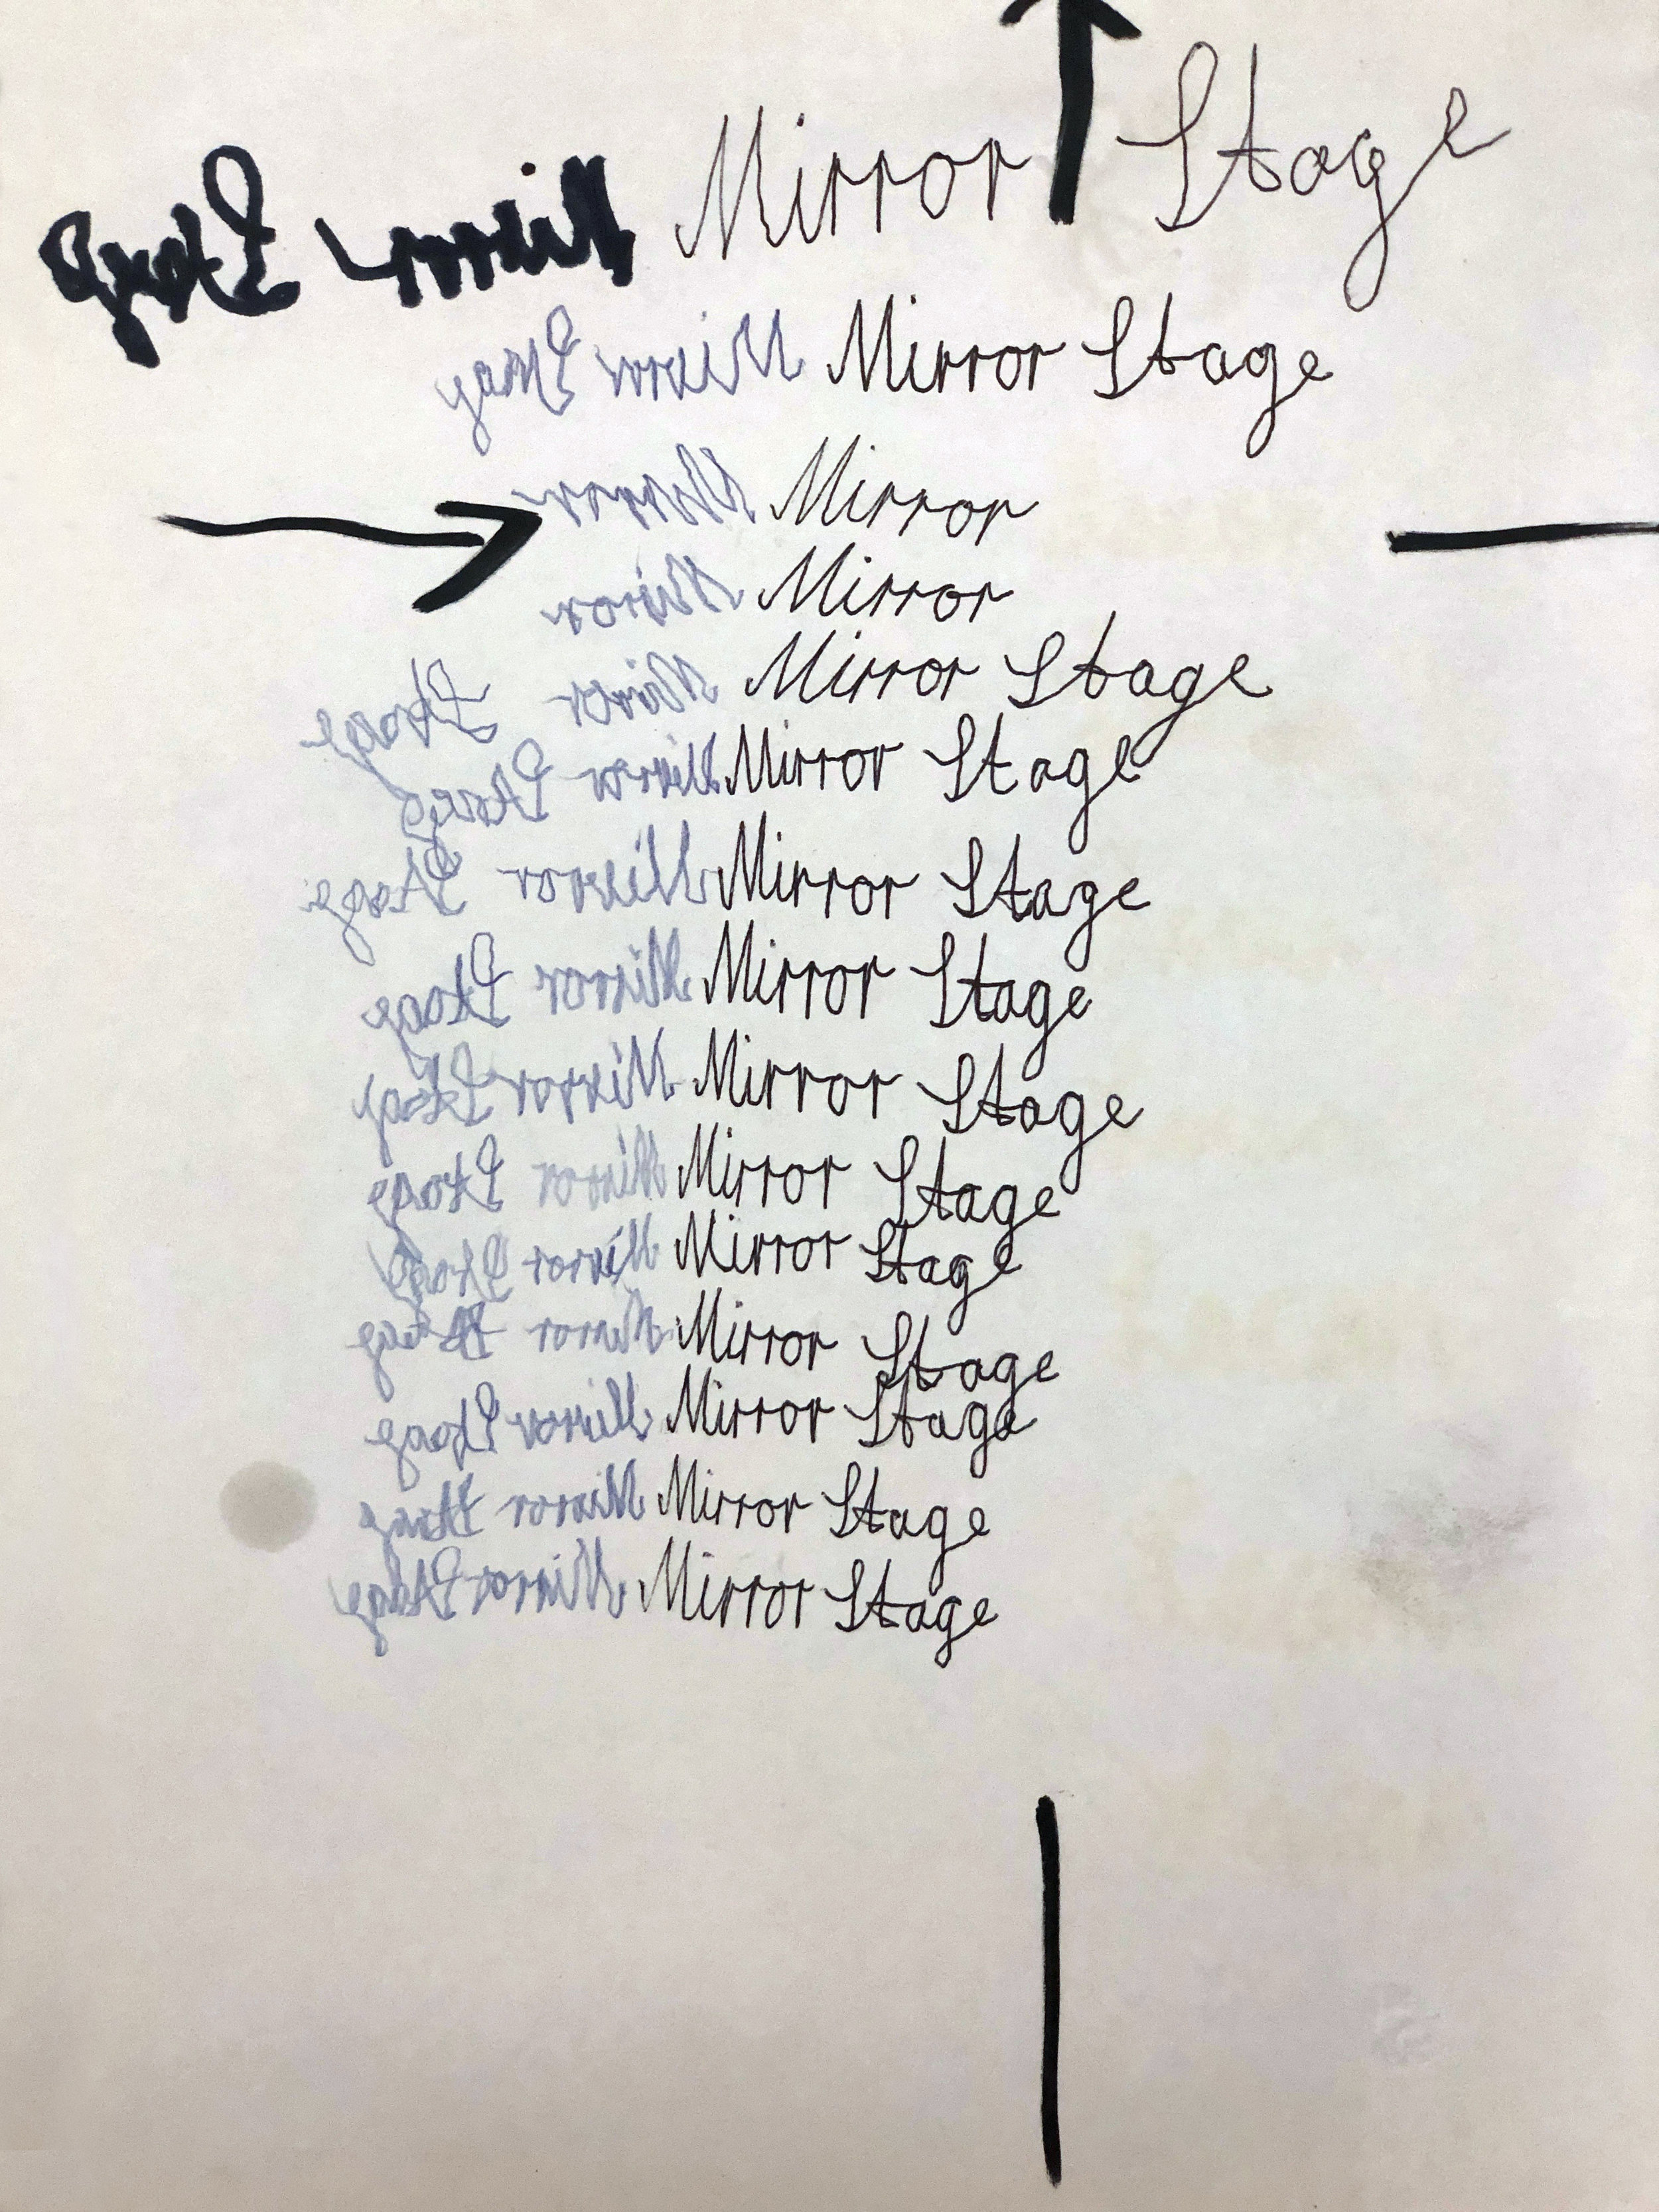 Mirror Stage Mirror Stage
Mirror Stage Mirror Stage
Mirror Mirror
Mirror Mirror
Mirror Stage Mirror Stage
Mirror Stage Mirror Stage
Mirror Stage Mirror Stage
Mirror Stage Mirror Stage
Mirror Stage Mirror Stage
Mirror Stage Mirror Stage
Mirror Stage Mirror Stage
Mirror Stage Mirror Stage
Mirror Stage Mirror Stage
Mirror Stage Mirror Stage
Mirror Stage Mirror Stage